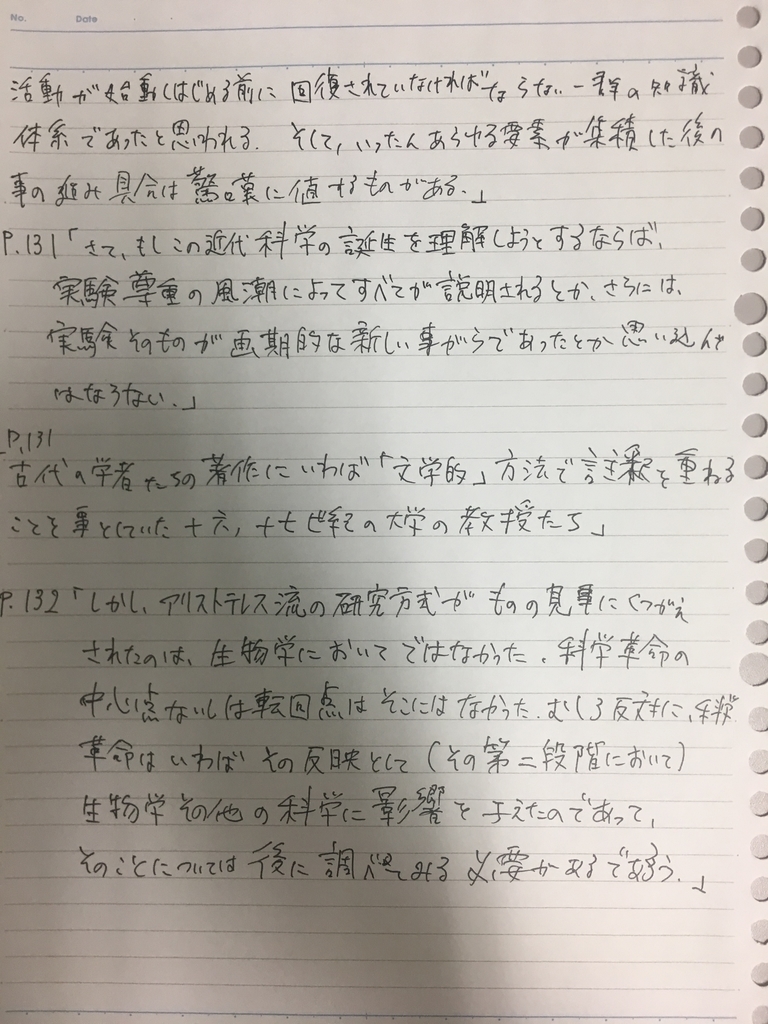 No.
Date
活動が始動しはじめる前に回復されていなければならない一群の知識
体系であったと思われる。そして、いったんあらゆる要素が集積した後の
事の進み具合は驚嘆に値するものがある。」
P.131「さて、もしこの近代科学の誕生を理解しようとするならば、
実験尊重の風潮によってすべてが説明されるとか、さらには、
実験そのものが画期的な新しい事がらであったとか思い込んで
はならない。」
P.131
古代の学者たちの著作にいわば「文学的」方法で註釈を重ねる
ことを事としていた十六,十七世紀の大学の教授たち」
P.132「しかし、アリストテレス流の研究方式がものの見事にくつがえ
されたのは、生物学においてではなかった。科学革命の
中心点ないしは転回点はそこにはなかった。むしろ反対に、科学
革命はいわばその反映として(その第二段階において)
生物学その他の科学に影響を与えたのであって、
そのことについては後に調べてみる必要があるであろう。」